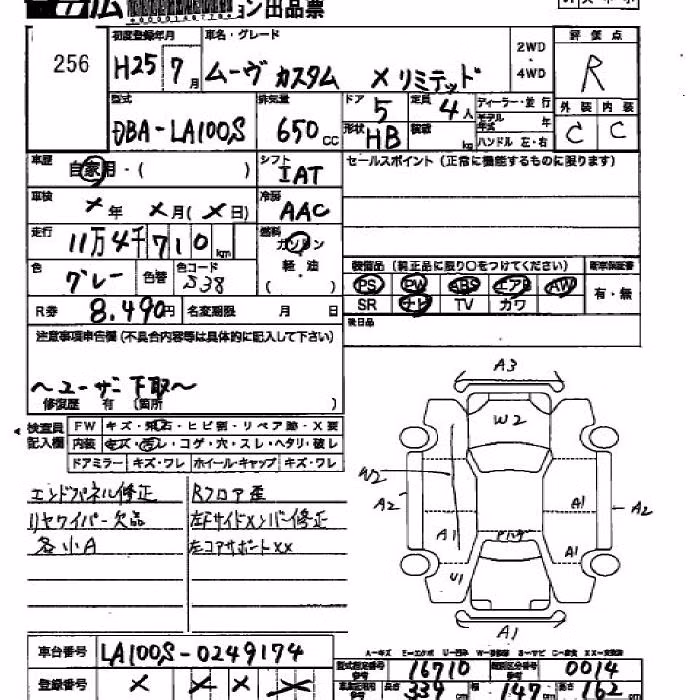 広 ョン出品票
256
初度登録年月 車名・グレード 2WD・4WD 評価点
H25 7月 ムーヴ カスタム X リミテッド R
型式 排気量 ドア 5 定員 4人 ディーラー・並行 外装 内装
DBA-LA100S 650cc 形状 HB 積載 kg モデル年式 年 ハンドル 左・右 C C
車歴 自家用・( ) シフト IAT セールスポイント (正常に機能するものに限ります)
車検 ×年 ×月(×日) 冷房 AAC
走行 11万4千710km 燃料 ガソリン 軽・油 ( )
色 グレー 色替 色コード S38
装備品 (純正品に限り○をつけてください) 新車保証書
PS PW ABS エアB AW 有・無
SR ナビ TV カワ
R券 8,490円 名変期限 月 日
後日品
注意事項申告欄 (不具合内容等は具体的に記入して下さい)
〜ユーザー下取〜
修復歴 有 (箇所 )
検査員記入欄 FW キズ・飛石・ヒビ割・リペア跡・X要
内装 キズ・汚レ・コゲ・穴・スレ・ヘタリ・破レ
ドアミラー キズ・ワレ ホイール・キャップ キズ・ワレ
エンドパネル修正 Rフロア歪
リヤワイパー欠品 左Fサイドメンバー修正
各小A 左コアサポートXX
A3
W2
W2
A2 A1 A2
A1 A1
U1
A1
車台番号 LA100S-0249174
登録番号 × × × ×
型式指定番号 16710 類別区分番号 0014
長さ 339cm 幅 147cm 高さ 162cm